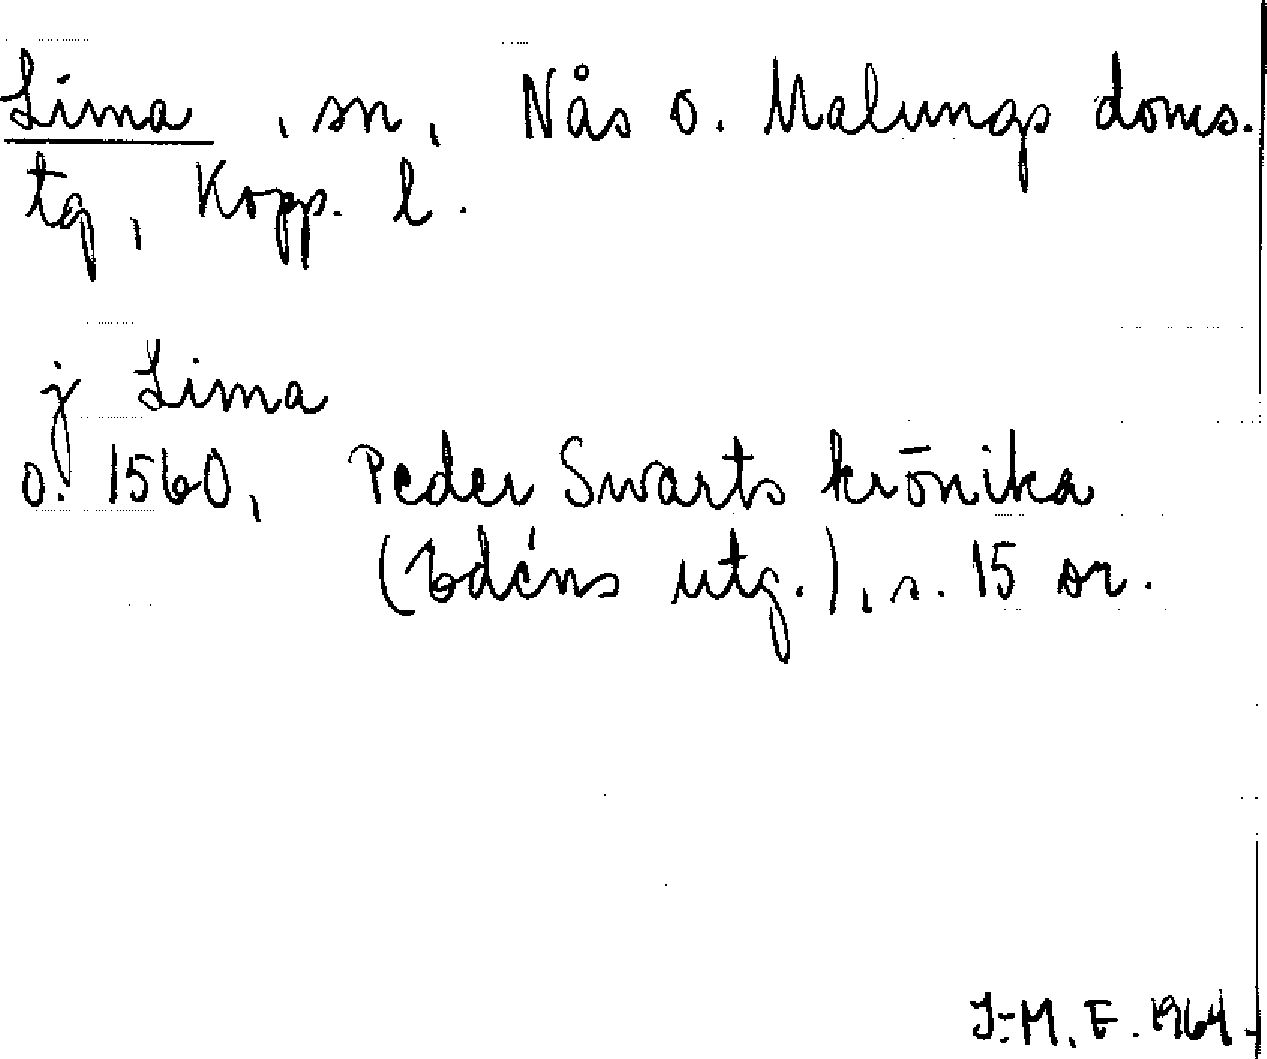 Lima, sn, Nås o. Malungs doms.
tg, Kopp. l.
j Lima
o. 1560, Peder Swarts krönika
(Edéns utg.), s. 15 or.
I-M. E. 1964.